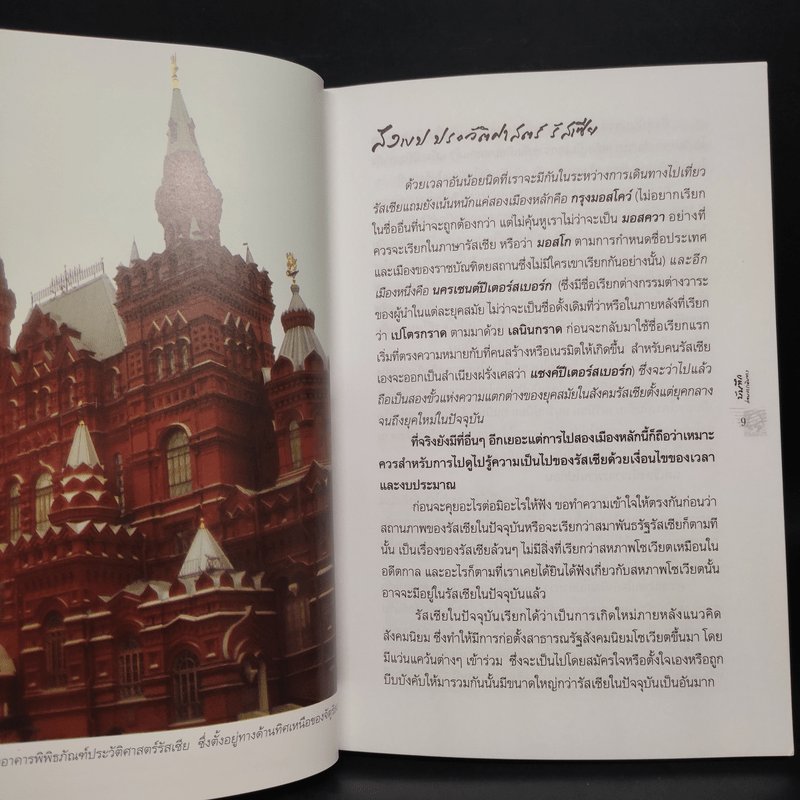 อาคารพิพิธภัณฑ์ประวัติศาสตร์รัสเซีย ซึ่งตั้งอยู่ทางด้านทิศเหนือของจัตุรัส
สังเขป ประวัติศาสตร์ รัสเซีย
ด้วยเวลาอันน้อยนิดที่เราจะมีกันในระหว่างการเดินทางไปเที่ยว
รัสเซียแถมยังเน้นหนักแค่สองเมืองหลักคือ กรุงมอสโคว์ (ไม่อยากเรียก
ในชื่ออื่นที่น่าจะถูกต้องกว่า แต่ไม่คุ้นหูเราไม่ว่าจะเป็น มอสควา อย่างที่
ควรจะเรียกในภาษารัสเซีย หรือว่า มอสโก ตามการกำหนดชื่อประเทศ
และเมืองของราชบัณฑิตยสถานซึ่งไม่มีใครเขาเรียกกันอย่างนั้น) และอีก
เมืองหนึ่งคือ นครเซนต์ปีเตอร์สเบอร์ก (ซึ่งมีชื่อเรียกต่างกรรมต่างวาระ
ของผู้นำในแต่ละยุคสมัย ไม่ว่าจะเป็นชื่อดั้งเดิมที่ว่าหรือในภายหลังที่เรียก
ว่า เปโตรกราด ตามมาด้วย เลนินกราด ก่อนจะกลับมาใช้ชื่อเรียกแรก
เริ่มที่ตรงความหมายกับที่คนสร้างหรือเนรมิตให้เกิดขึ้น สำหรับคนรัสเซีย
เองจะออกเป็นสำเนียงฝรั่งเศสว่า แซงค์ปีเตอร์สเบอร์ก) ซึ่งจะว่าไปแล้ว
ถือเป็นสองขั้วแห่งความแตกต่างของยุคสมัยในสังคมรัสเซียตั้งแต่ยุคกลาง
จนถึงยุคใหม่ในปัจจุบัน
ที่จริงยังมีที่อื่นๆ อีกเยอะแต่การไปสองเมืองหลักนี้ก็ถือว่าเหมาะ
ควรสำหรับการไปดูไปรู้ความเป็นไปของรัสเซียด้วยเงื่อนไขของเวลา
และงบประมาณ
ก่อนจะคุยอะไรต่อมิอะไรให้ฟัง ขอทำความเข้าใจให้ตรงกันก่อนว่า
สถานภาพของรัสเซียในปัจจุบันหรือจะเรียกว่าสมาพันธรัฐรัสเซียก็ตามที
นั้น เป็นเรื่องของรัสเซียล้วนๆ ไม่มีสิ่งที่เรียกว่าสหภาพโซเวียตเหมือนใน
อดีตกาล และอะไรก็ตามที่เราเคยได้ยินได้ฟังเกี่ยวกับสหภาพโซเวียตนั้น
อาจจะมีอยู่ในรัสเซียในปัจจุบันแล้ว
รัสเซียในปัจจุบันเรียกได้ว่าเป็นการเกิดใหม่ภายหลังแนวคิด
สังคมนิยม ซึ่งทำให้มีการก่อตั้งสาธารณรัฐสังคมนิยมโซเวียตขึ้นมา โดย
มีแว่นแคว้นต่างๆ เข้าร่วม ซึ่งจะเป็นไปโดยสมัครใจหรือตั้งใจเองหรือถูก
บีบบังคับให้มารวมกันนั้นมีขนาดใหญ่กว่ารัสเซียในปัจจุบันเป็นอันมาก
บันทึก
9